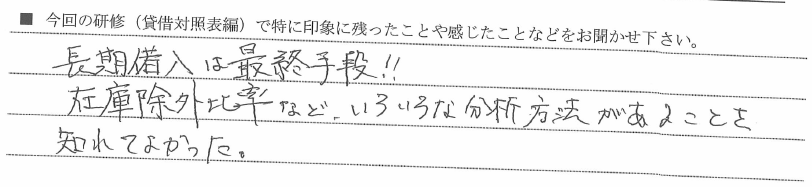 ■ 今回の研修（貸借対照表編）で特に印象に残ったことや感じたことなどをお聞かせ下さい。
長期借入は最終手段!!
在庫除外比率など、いろいろな分析方法があることを
知れてよかった。